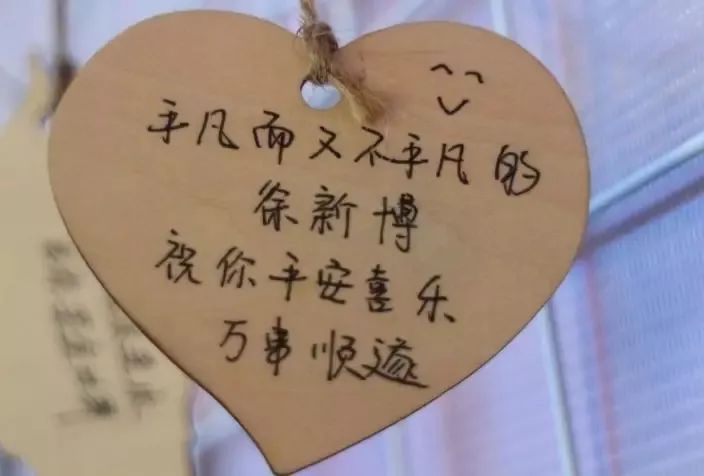 平凡而又不平凡的
徐新博
祝你平安喜乐
万事顺遂